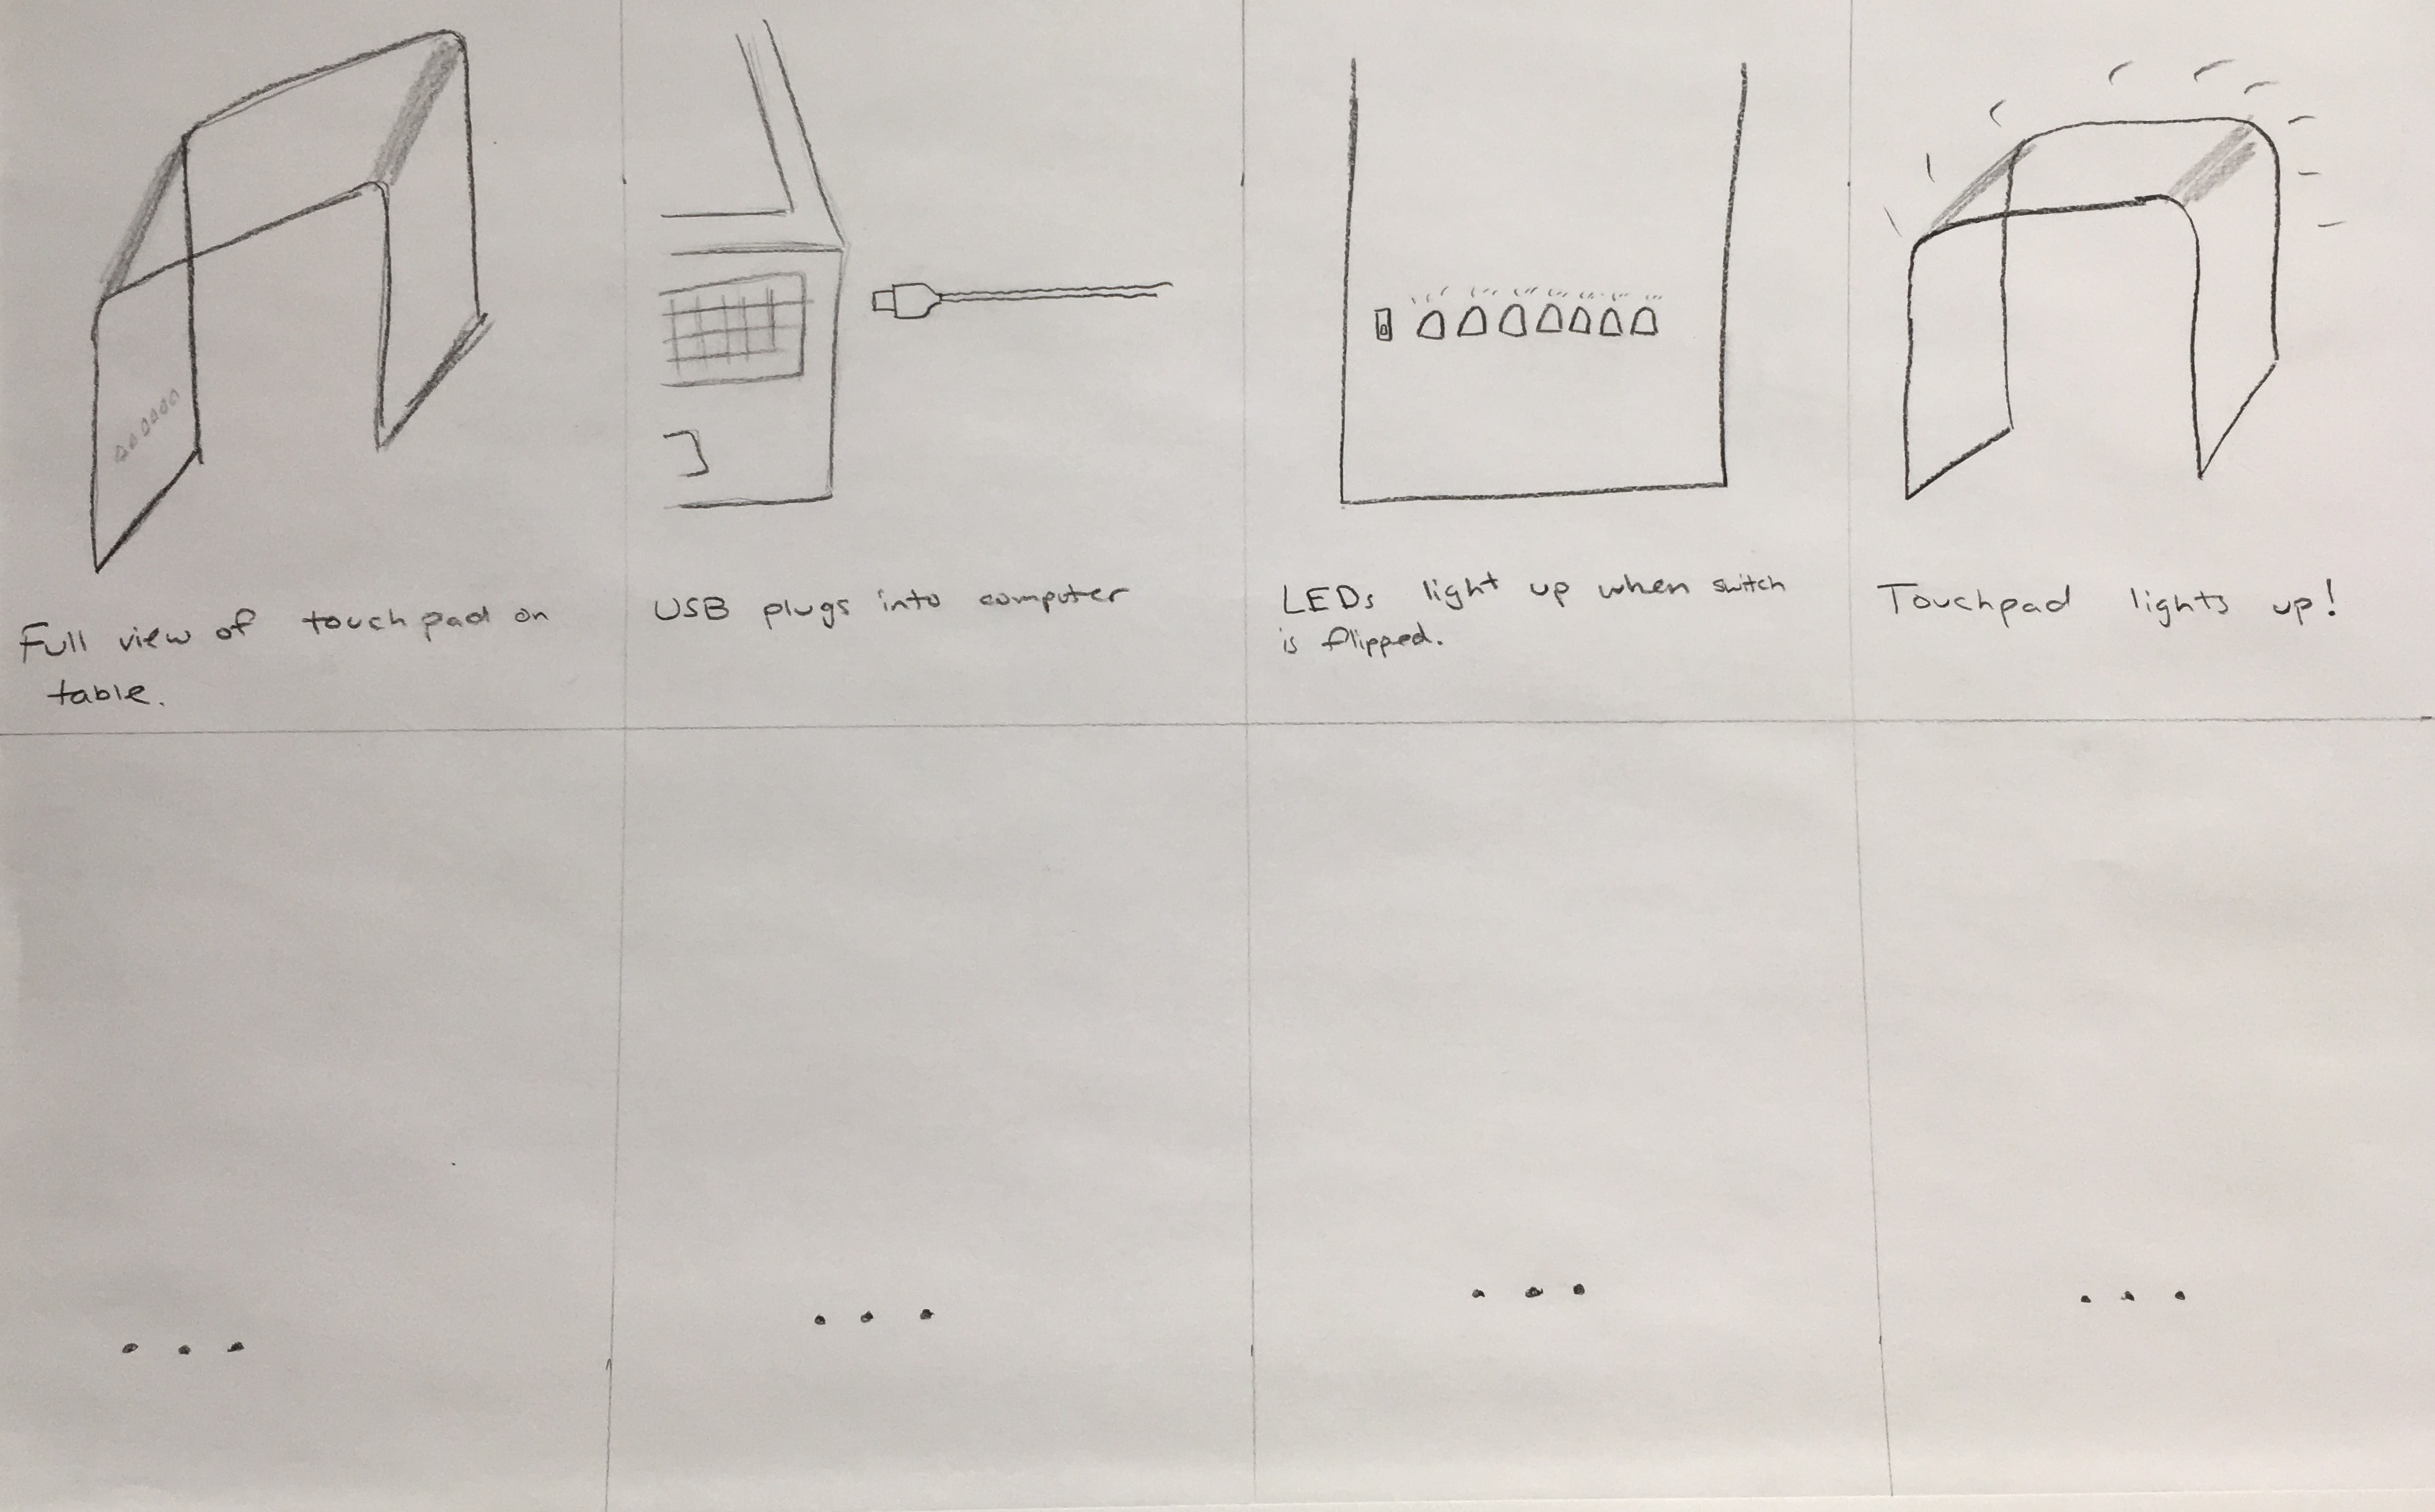 Full view of touchpad on
table.
USB plugs into computer
LEDs light up when switch
is flipped.
Touchpad lights up!
...
...
...
...